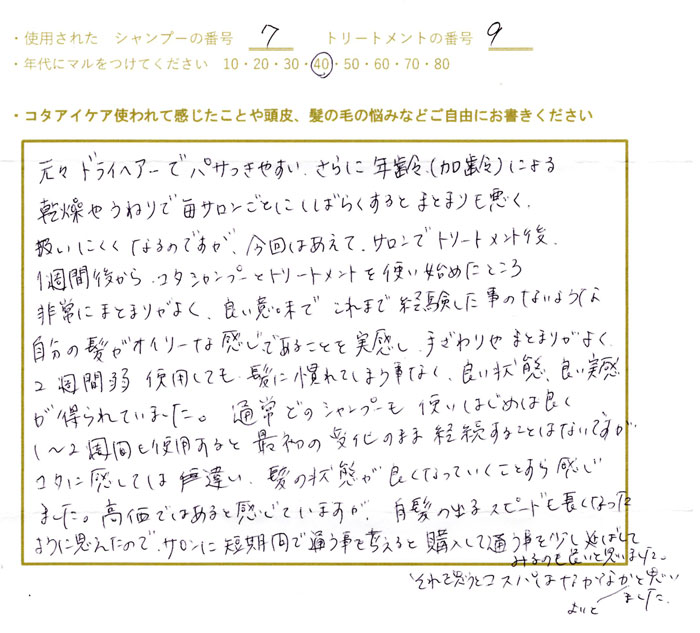 ・使用された シャンプーの番号 7 トリートメントの番号 9
・年代にマルをつけてください 10・20・30・40・50・60・70・80
・コタアイケア使われて感じたことや頭皮、髪の毛の悩みなどご自由にお書きください
元々ドライヘアーでパサつきやすい、さらに年齢(加齢)による
乾燥やうねりで毎サロンごとにしばらくするとまとまりも悪く、
扱いにくくなるのですが、今回はあえて、サロンでトリートメント後、
1週間後から、コタシャンプーとトリートメントを使い始めたところ
非常にまとまりがよく、良い意味でこれまで経験した事のないような
自分の髪がオイリーな感じであることを実感し、手ざわりやまとまりがよく
2週間弱使用しても、髪に慣れてしまう事なく、良い状態、良い実感
が得られていました。通常どのシャンプーも使いはじめは良く
1〜2週間も使用すると最初の変化のまま経続することはないですが
コタに感しては違い、髪の状態が良くなっていくことすら感じ
ました。高価ではあると感じていますが、白髪の出るスピードも長くなった
ように思えたので、サロンに短期間で通う事を考えると購入して通う事を少し延ばして
みるのも良いと思いました。
それを思うとコスパはなかなかよいと思い
ました。